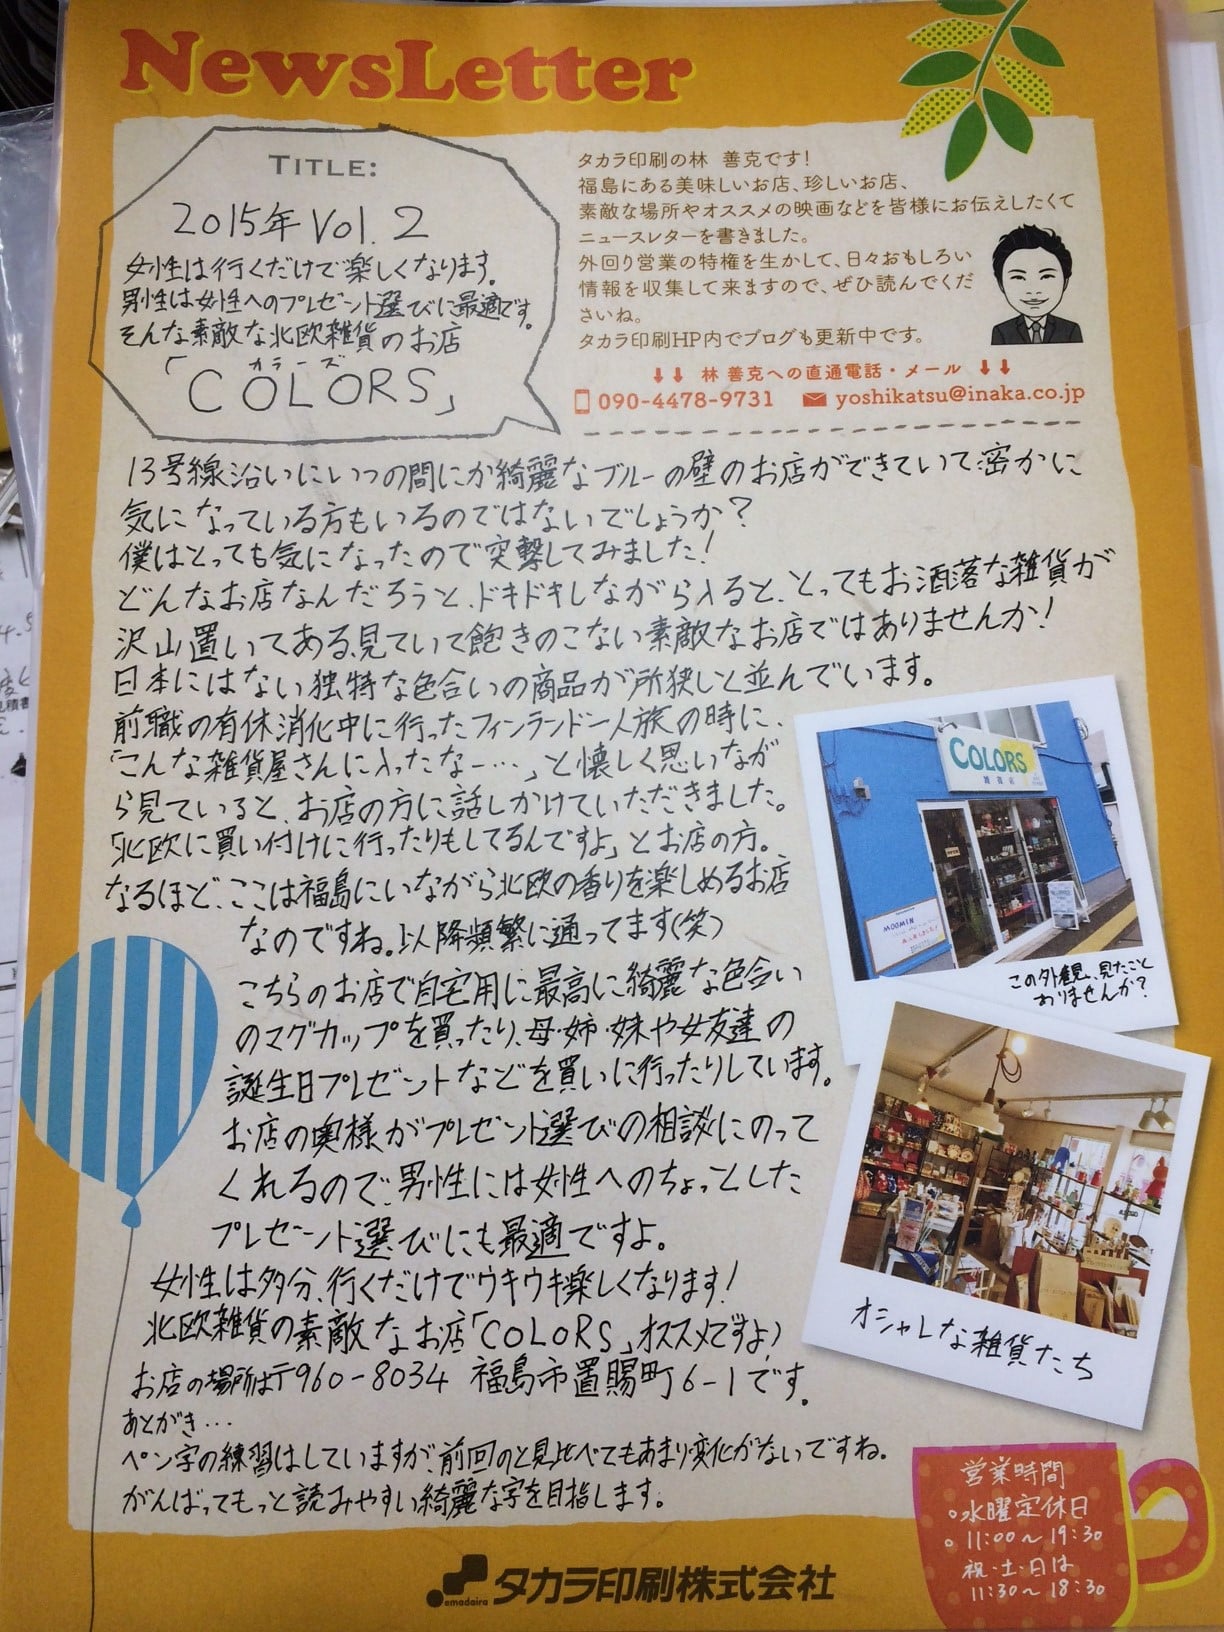 NewsLetter
TITLE:
2015年 Vol.2
女性は行くだけで楽しくなります。
男性は女性へのプレゼント選びに最適です。
そんな素敵な北欧雑貨のお店
カラーズ
「COLORS」
タカラ印刷の林 善克です！
福島にある美味しいお店、珍しいお店、
素敵な場所やオススメの映画などを皆様にお伝えしたくて
ニュースレターを書きました。
外回り営業の特権を生かして、日々おもしろい
情報を収集して来ますので、ぜひ読んでくだ
さいね。
タカラ印刷HP内でブログも更新中です。
↓↓ 林 善克への直通電話・メール ↓↓
090-4478-9731 yoshikatsu@inaka.co.jp
13号線沿いにいつの間にか綺麗なブルーの壁のお店ができていて密かに
気になっている方もいるのではないでしょうか？
僕はとっても気になったので突撃してみました！
どんなお店なんだろうと、ドキドキしながら入ると、とってもお洒落な雑貨が
沢山置いてある、見ていて飽きのこない素敵なお店ではありませんか！
日本にはない独特な色合いの商品が所狭しと並んでいます。
前職の有休消化中に行ったフィンランド一人旅の時に、
「こんな雑貨屋さんに入ったなー…」と懐しく思いなが
ら見ていると、お店の方に話しかけていただきました。
「北欧に買い付けに行ったりもしてるんですよ」とお店の方。
なるほど、ここは福島にいながら北欧の香りを楽しめるお店
なのですね。以降頻繁に通ってます(笑)
こちらのお店で自宅用に最高に綺麗な色合い
のマグカップを買ったり、母・姉・妹や女友達の
誕生日プレゼントなどを買いに行ったりしています。
お店の奥様がプレゼント選びの相談にのって
くれるので、男性には女性へのちょっとした
プレゼント選びにも最適ですよ。
女性は多分、行くだけでウキウキ楽しくなります！
北欧雑貨の素敵なお店「COLORS」オススメですよ♪
お店の場所は〒960-8034 福島市置賜町6-1です。
あとがき…
ペン字の練習はしていますが、前回のと見比べてもあまり変化がないですね。
がんばってもっと読みやすい綺麗な字を目指します。
COLORS
雑貨店
MOOMIN
この外観、見たこと
ありませんか？
オシャレな雑貨たち
営業時間
○水曜定休日
○11:00～19:30
祝・土・日は
11:30～18:30
emadaira
タカラ印刷株式会社